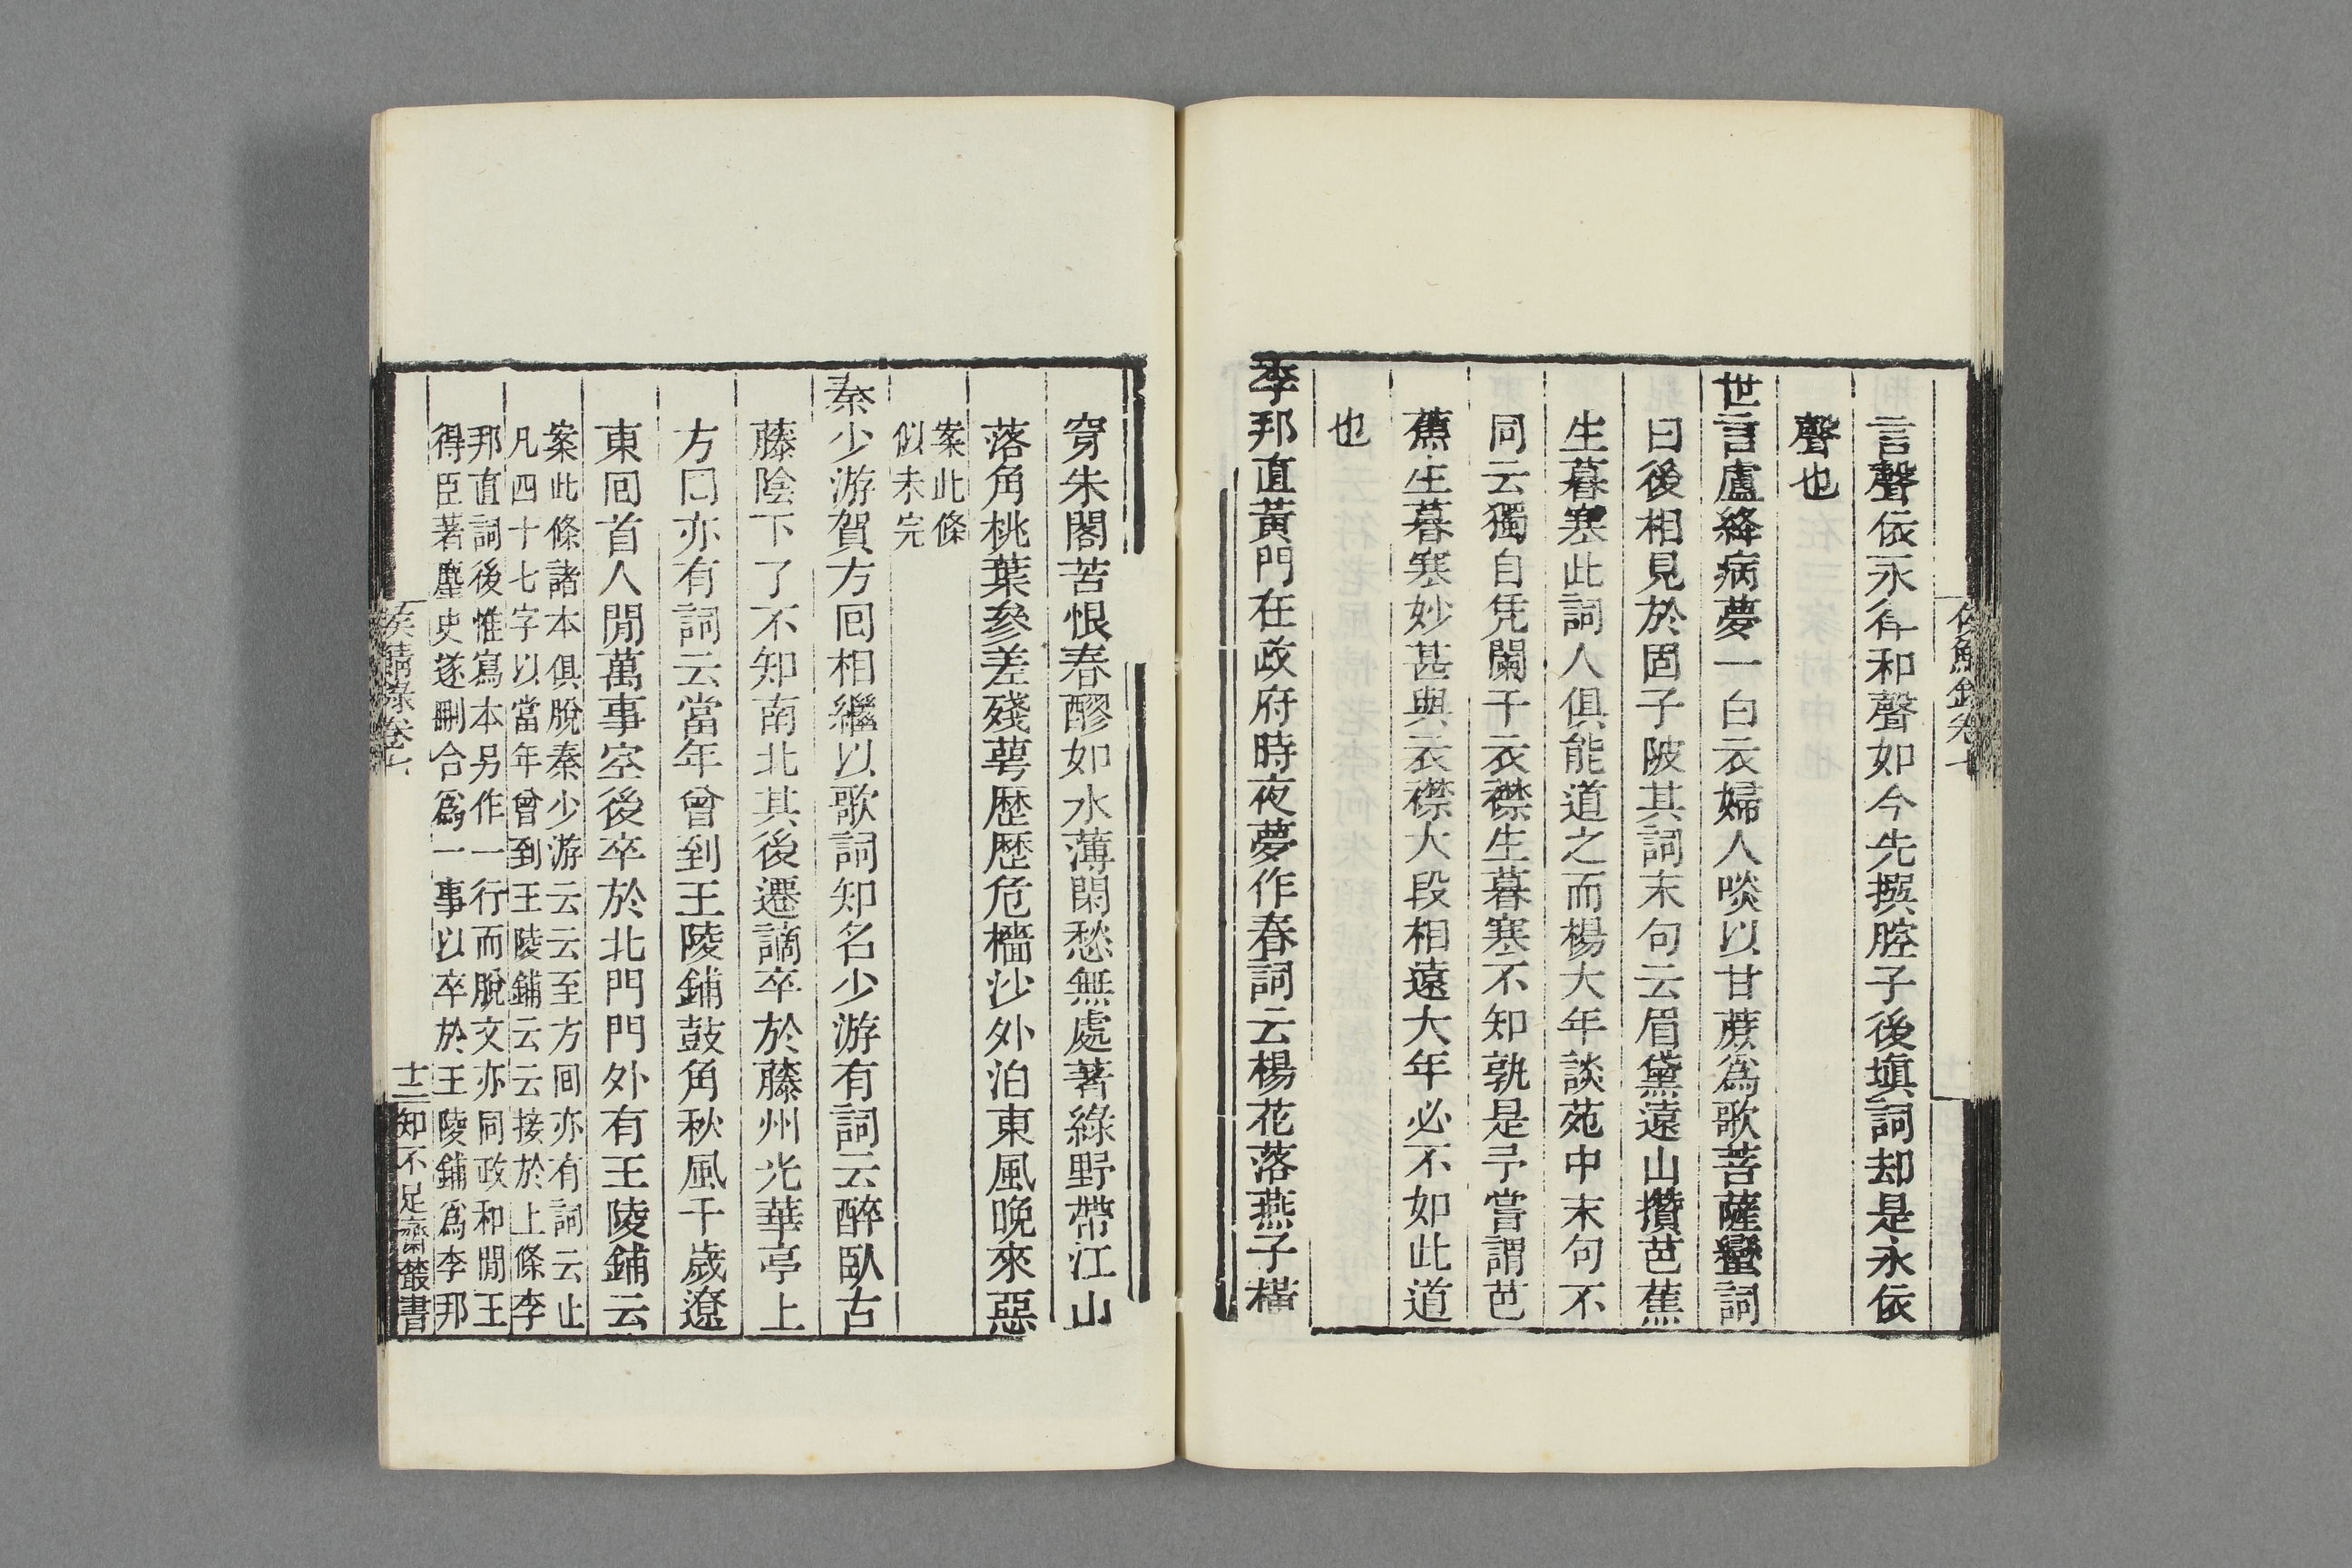 言聲依永律和聲如今先撰腔子後塡詞却是永依
聲也
世言盧絳病夢一白衣婦人啖以甘蔗爲歌菩薩蠻詞
曰後相見於固子陂其詞末句云眉黛遠山攢芭蕉
生暮寒此詞人俱能道之而楊大年談苑中末句不
同云獨自凭闌干衣襟生暮寒不知孰是予嘗謂芭
蕉生暮寒妙甚與衣襟大段相遠大年必不如此道
也
李邦直黃門在政府時夜夢作春詞云楊花落燕子橫
穿朱閣苦恨春醪如水薄閑愁無處著綠野帶江山
落角桃葉參差殘萼歷歷危檣沙外泊東風晚來惡
案此條
似未完
秦少游賀方回相繼以歌詞知名少游有詞云醉臥古
藤陰下了不知南北其後遷謫卒於藤州光華亭上
方回亦有詞云當年曾到王陵鋪鼓角秋風千歲遼
東回首人間萬事空後卒於北門門外有王陵鋪云
案此條諸本俱脫秦少游云云至方回亦有詞云止
凡四十七字以當年曾到王陵鋪云云接於上條李
邦直詞後惟寫本另作一行而脫文亦同政和間王
得臣著麈史遂刪合爲一事以卒於王陵鋪爲李邦
侯鯖錄卷七
十二
知不足齋叢書